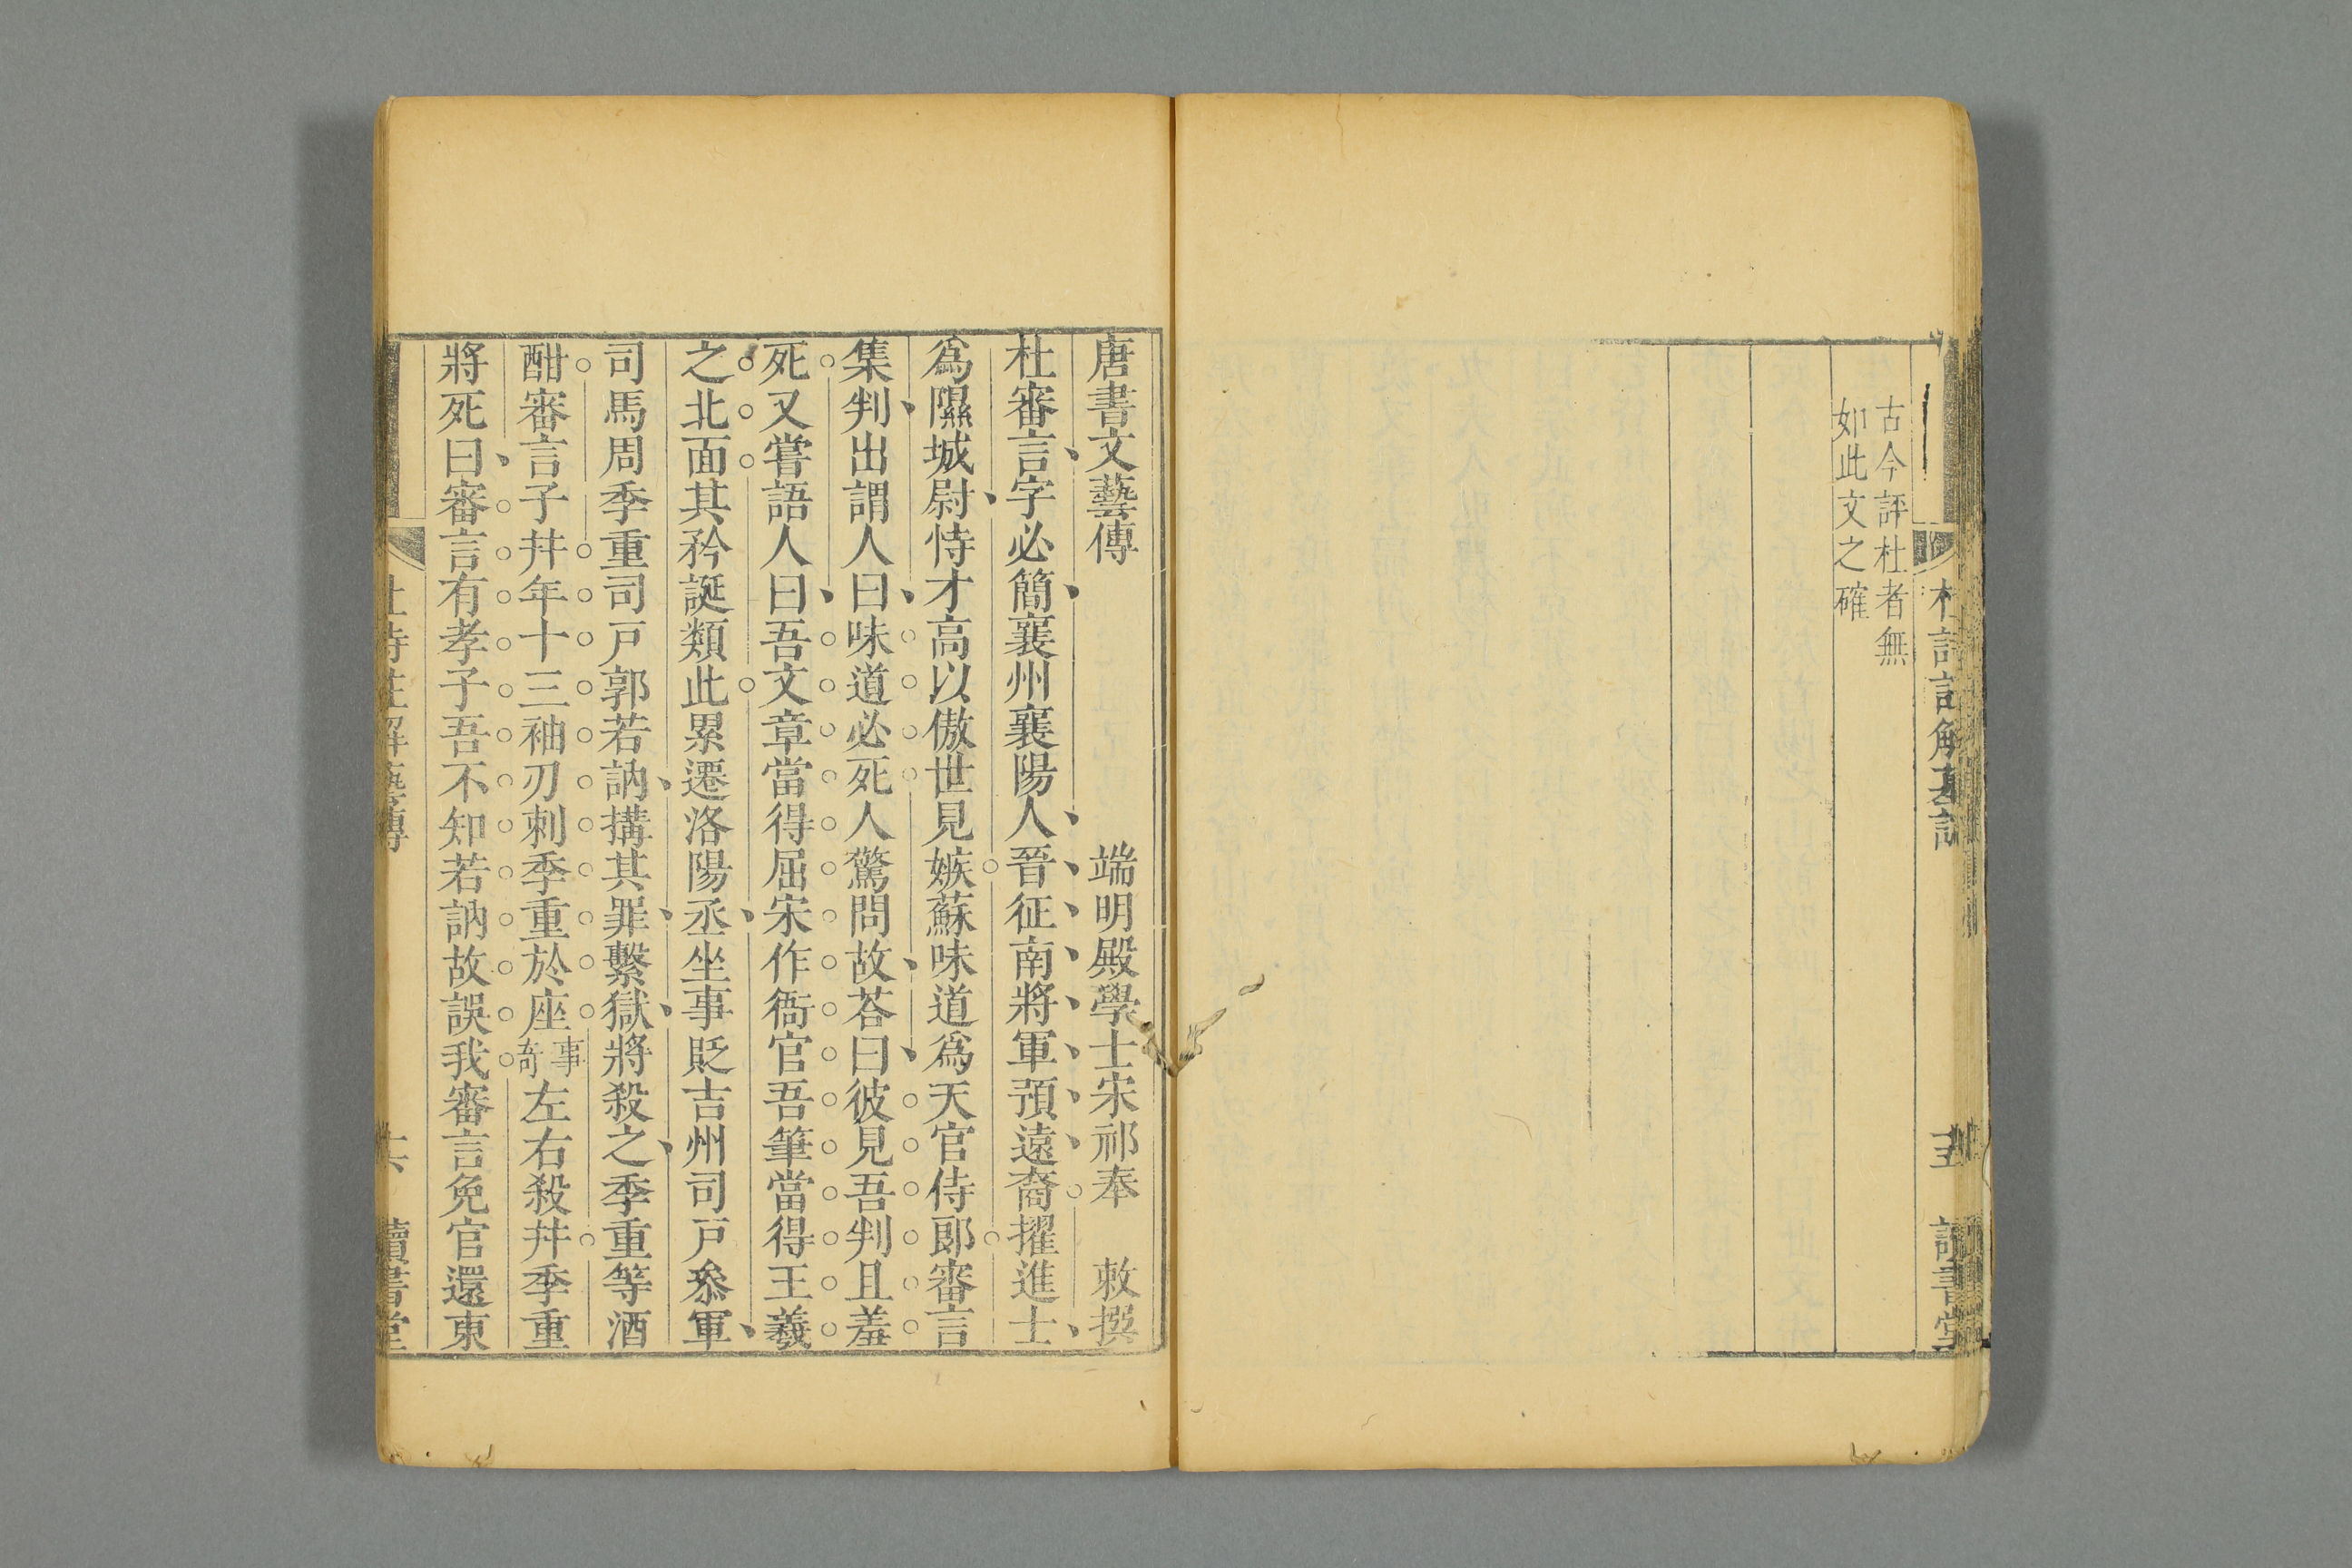 古今評杜者無
如此文之確
唐書文藝傳 端明殿學士宋祁奉 敕撰
杜審言字必簡襄州襄陽人晉征南將軍預遠裔擢進士
為隰城尉恃才高以傲世見嫉蘇味道為天官侍郎審言
集判出謂人曰味道必死人驚問故荅曰彼見吾判且羞
死又嘗語人曰吾文章當得屈宋作衙官吾筆當得王羲
之北面其矜誕類此累遷洛陽丞坐事貶吉州司戸叅軍
司馬周季重司戸郭若訥搆其罪繫獄將殺之季重等酒
酣審言子并年十三袖刃刺季重於座事奇左右殺并季重
將死曰審言有孝子吾不知若訥故誤我審言免官還東
讀書堂